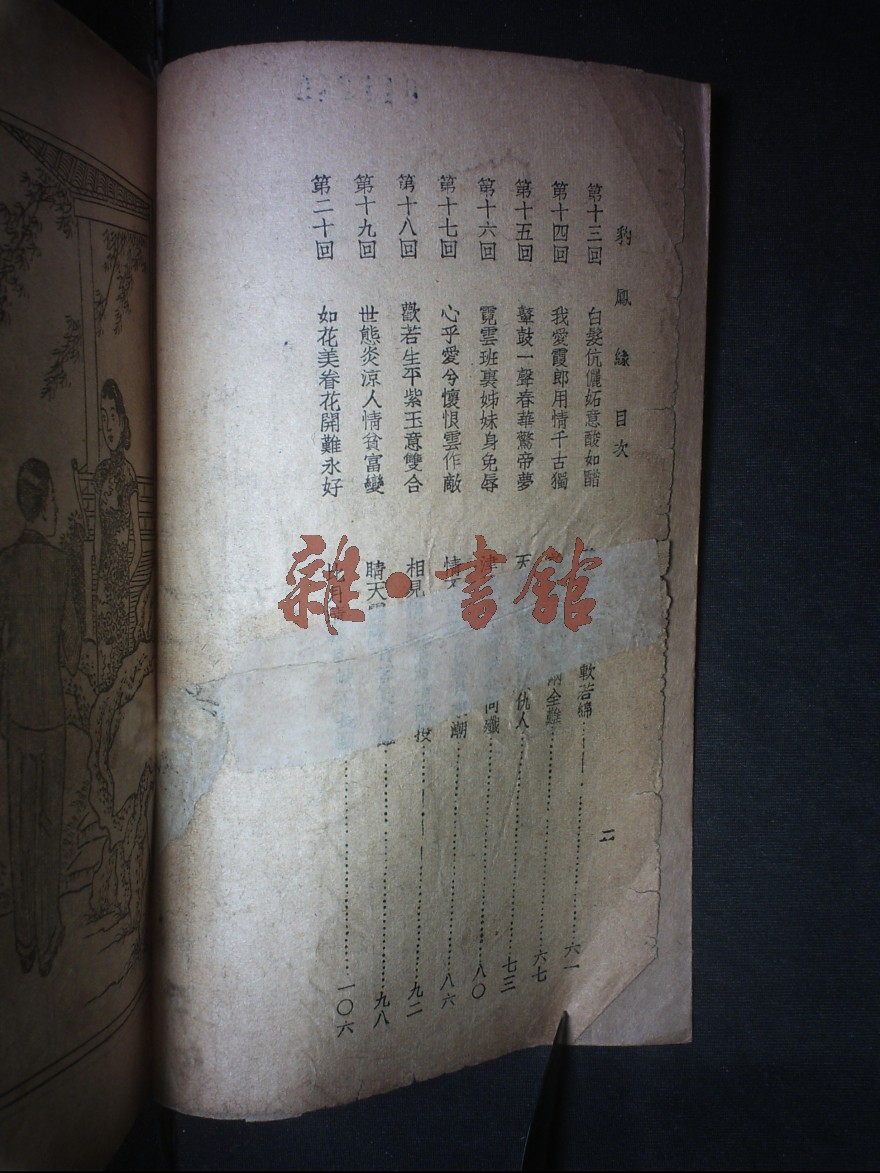 豹鳳緣目次
二
第十三回 白髮伉儷妬意酸如醋 軟若綿 六一
第十四回 我愛霞郎用情千古獨 全難 六七
第十五回 鼙鼓一聲春華驚帝夢 天 仇人 七三
第十六回 霓雲班裏姊妹身免辱 同殲 八〇
第十七回 心乎愛兮懷恨雲作敵 情 潮 八六
第十八回 歡若生平紫玉意雙合 相見 投 九二
第十九回 世態炎涼人情貧富變 晴天 九八
第二十回 如花美眷花開難永好 一〇六
雜·書館